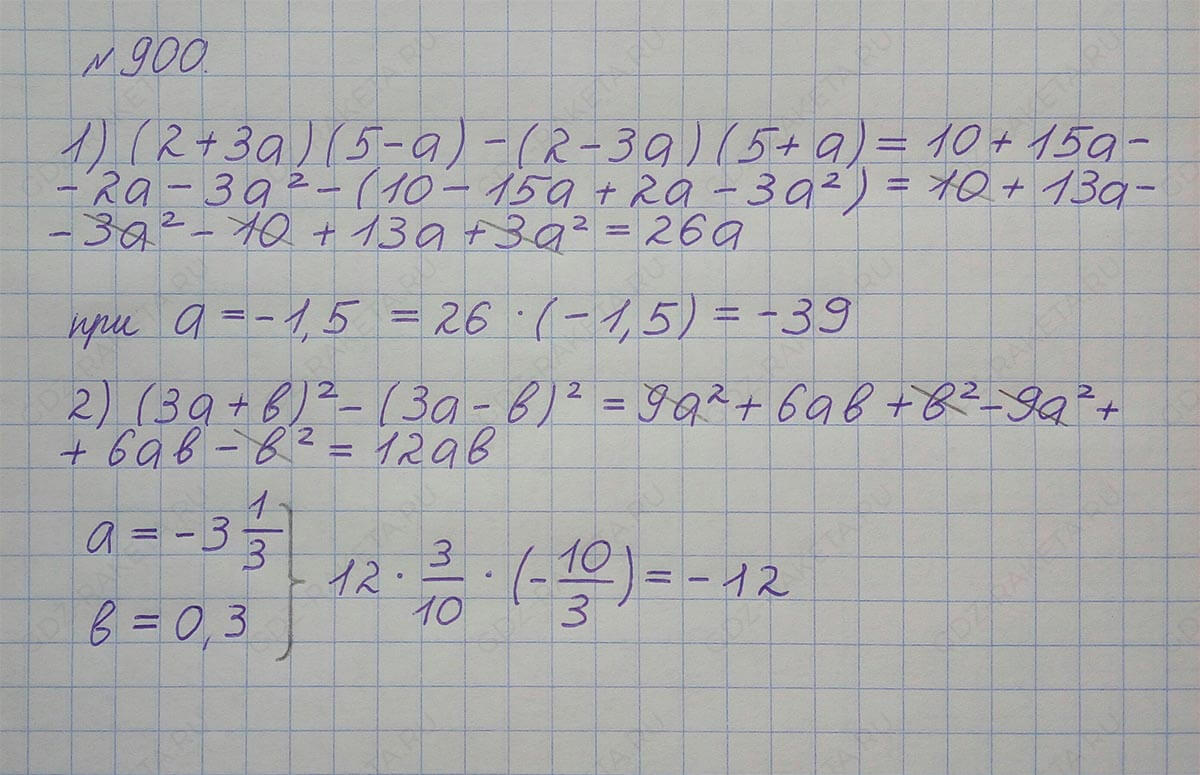 №900.
1) (2+3а)(5-а)-(2-3а)(5+а)=10+15а-
-2а-3а²-(10-15а+2а-3а²)=10+13а-
-3а²-10+13а+3а²=26а
при а=-1,5 =26·(-1,5)=-39
2) (3а+в)²-(3а-в)²=9а²+6ав+в²-9а²+
+6ав-в²=12ав
а=-3 1/3
в=0,3
12·3/10·(-10/3)=-12
GDZ-RAKETA.RU